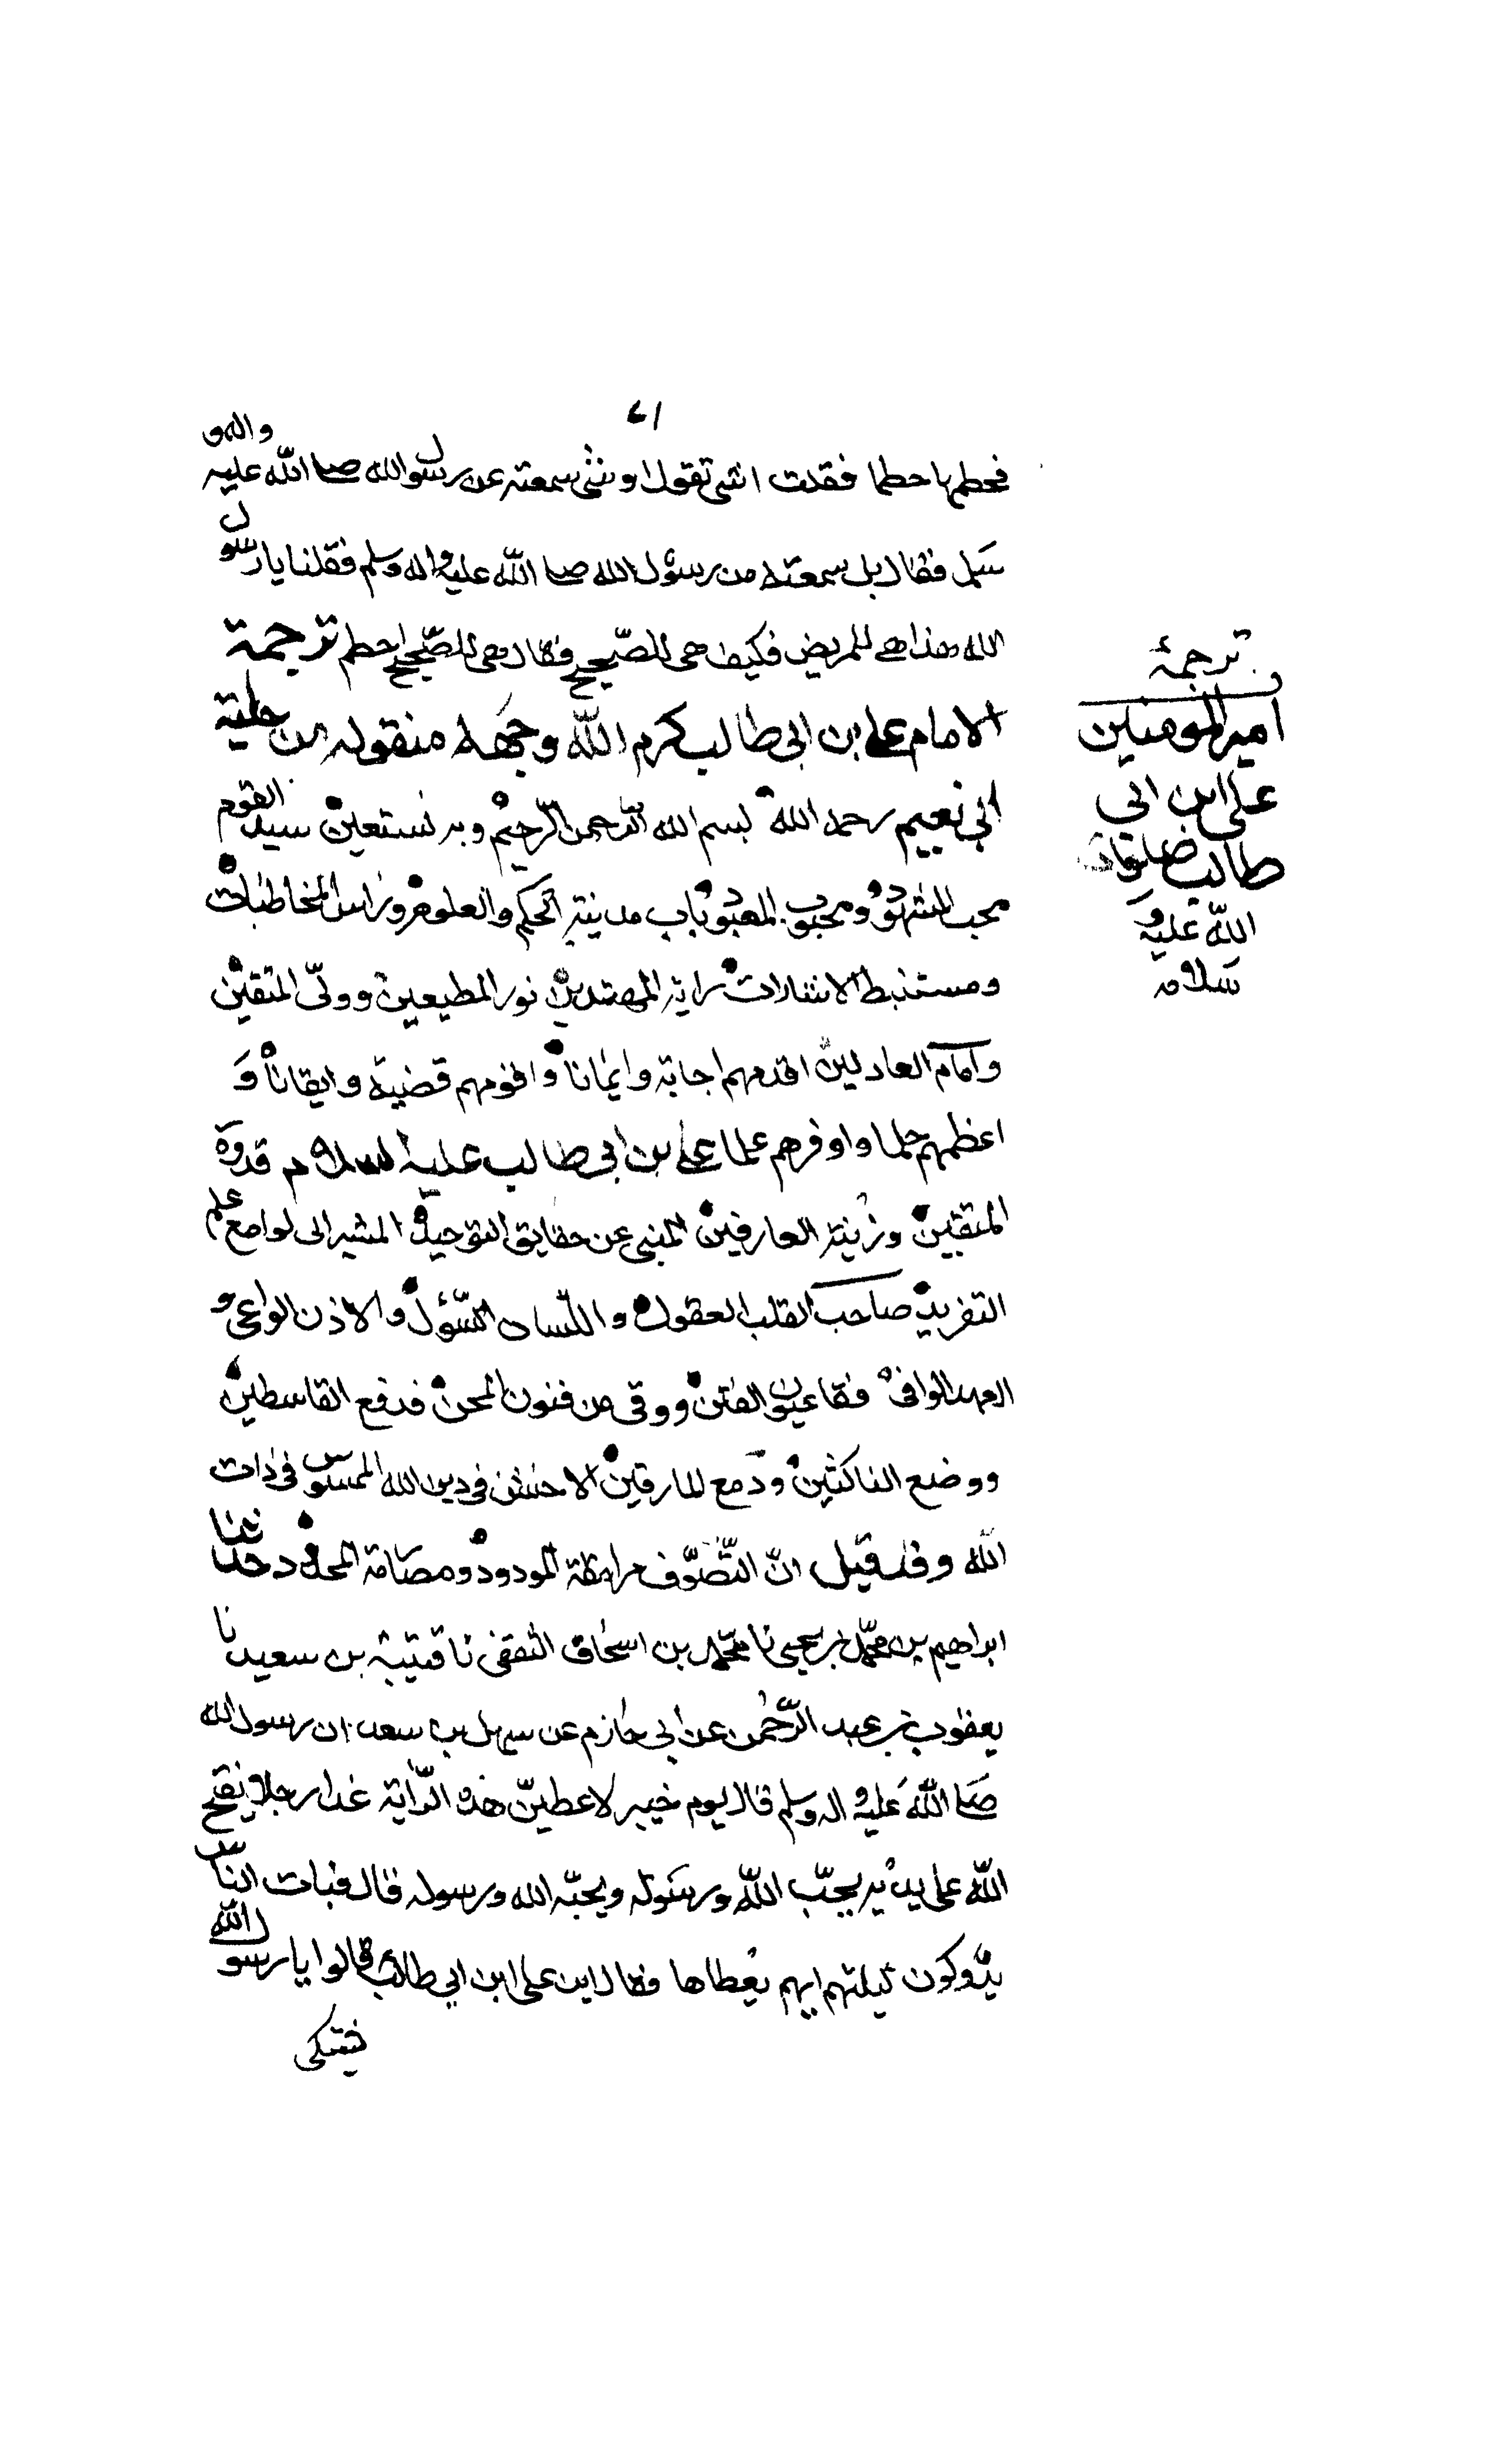 ٧١
فحطمها حطما فقلت اشئ تقول او شئ سمعته عن رسول الله صلى الله عليه واله و
سلم فقال بل سمعته من رسول الله صلى الله عليه واله وسلم فقلنا يا رسول
الله هذا هي للمريض فكيف هي للصّحيح فقال هي للصّحيح احطم ترجمة
الامام علي بن ابي طالب كرم الله وجهه منقوله من حلية
ابي نعيم رحمه الله بسم الله الرّحمن الرّحيم وبه نستعين سيد القوم
محب المشهود ومحبوب المعبود باب مدينة الحكم والعلوم وراس المخاطبات
ومستنبط الاشارات راية المهتدين نور المطيعين ووليّ المتقين
وامام العادلين اقدمهم اجابة وايمانا واقومهم قضية وايقانا وَ
اعظمهم حلما واوفرهم علما علي بن ابي طالب عليه السلام قدوة
المتقين وزينة العارفين المنبي عن حقايق التوحيد المشير الى لوامع علم
التفريد صاحب القلب العقول واللّسان السّؤل والاذن الواعي و
العهد الوافي فقا عيون الفتن ووقي من فنون المحن فدفع القاسطين
ووضع الناكثين ودمع المارقين الاخشن في دين الله الممسوس في ذات
الله وقد قيل انّ التّصّوّف مرامقة المودود ومصامة المحدود حدثنا
ابراهيم بن محمّد بن يحيى نا محمّد بن اسحاق الثقفي نا قتيبة بن سعيد نا
يعقوب بن عبد الرّحمن عن ابي حازم عن سهل بن سعد ان رسول الله
صلى الله عليه واله وسلم قال يوم خيبر لاعطينّ هذه الرّاية غدا رجلا يفتح
الله على يديه يحبّ الله ورسوله ويحبّه الله ورسوله قال فبات النّاس
يدوكون ليلتهم ايهم يُعطاها فقال اين علي ابن ابي طالب قالوا يا رسول الله
فيشتكى
ترجمة
امير المومنين
علي ابن ابي
طالب صلوات
الله عليه و
سلامه